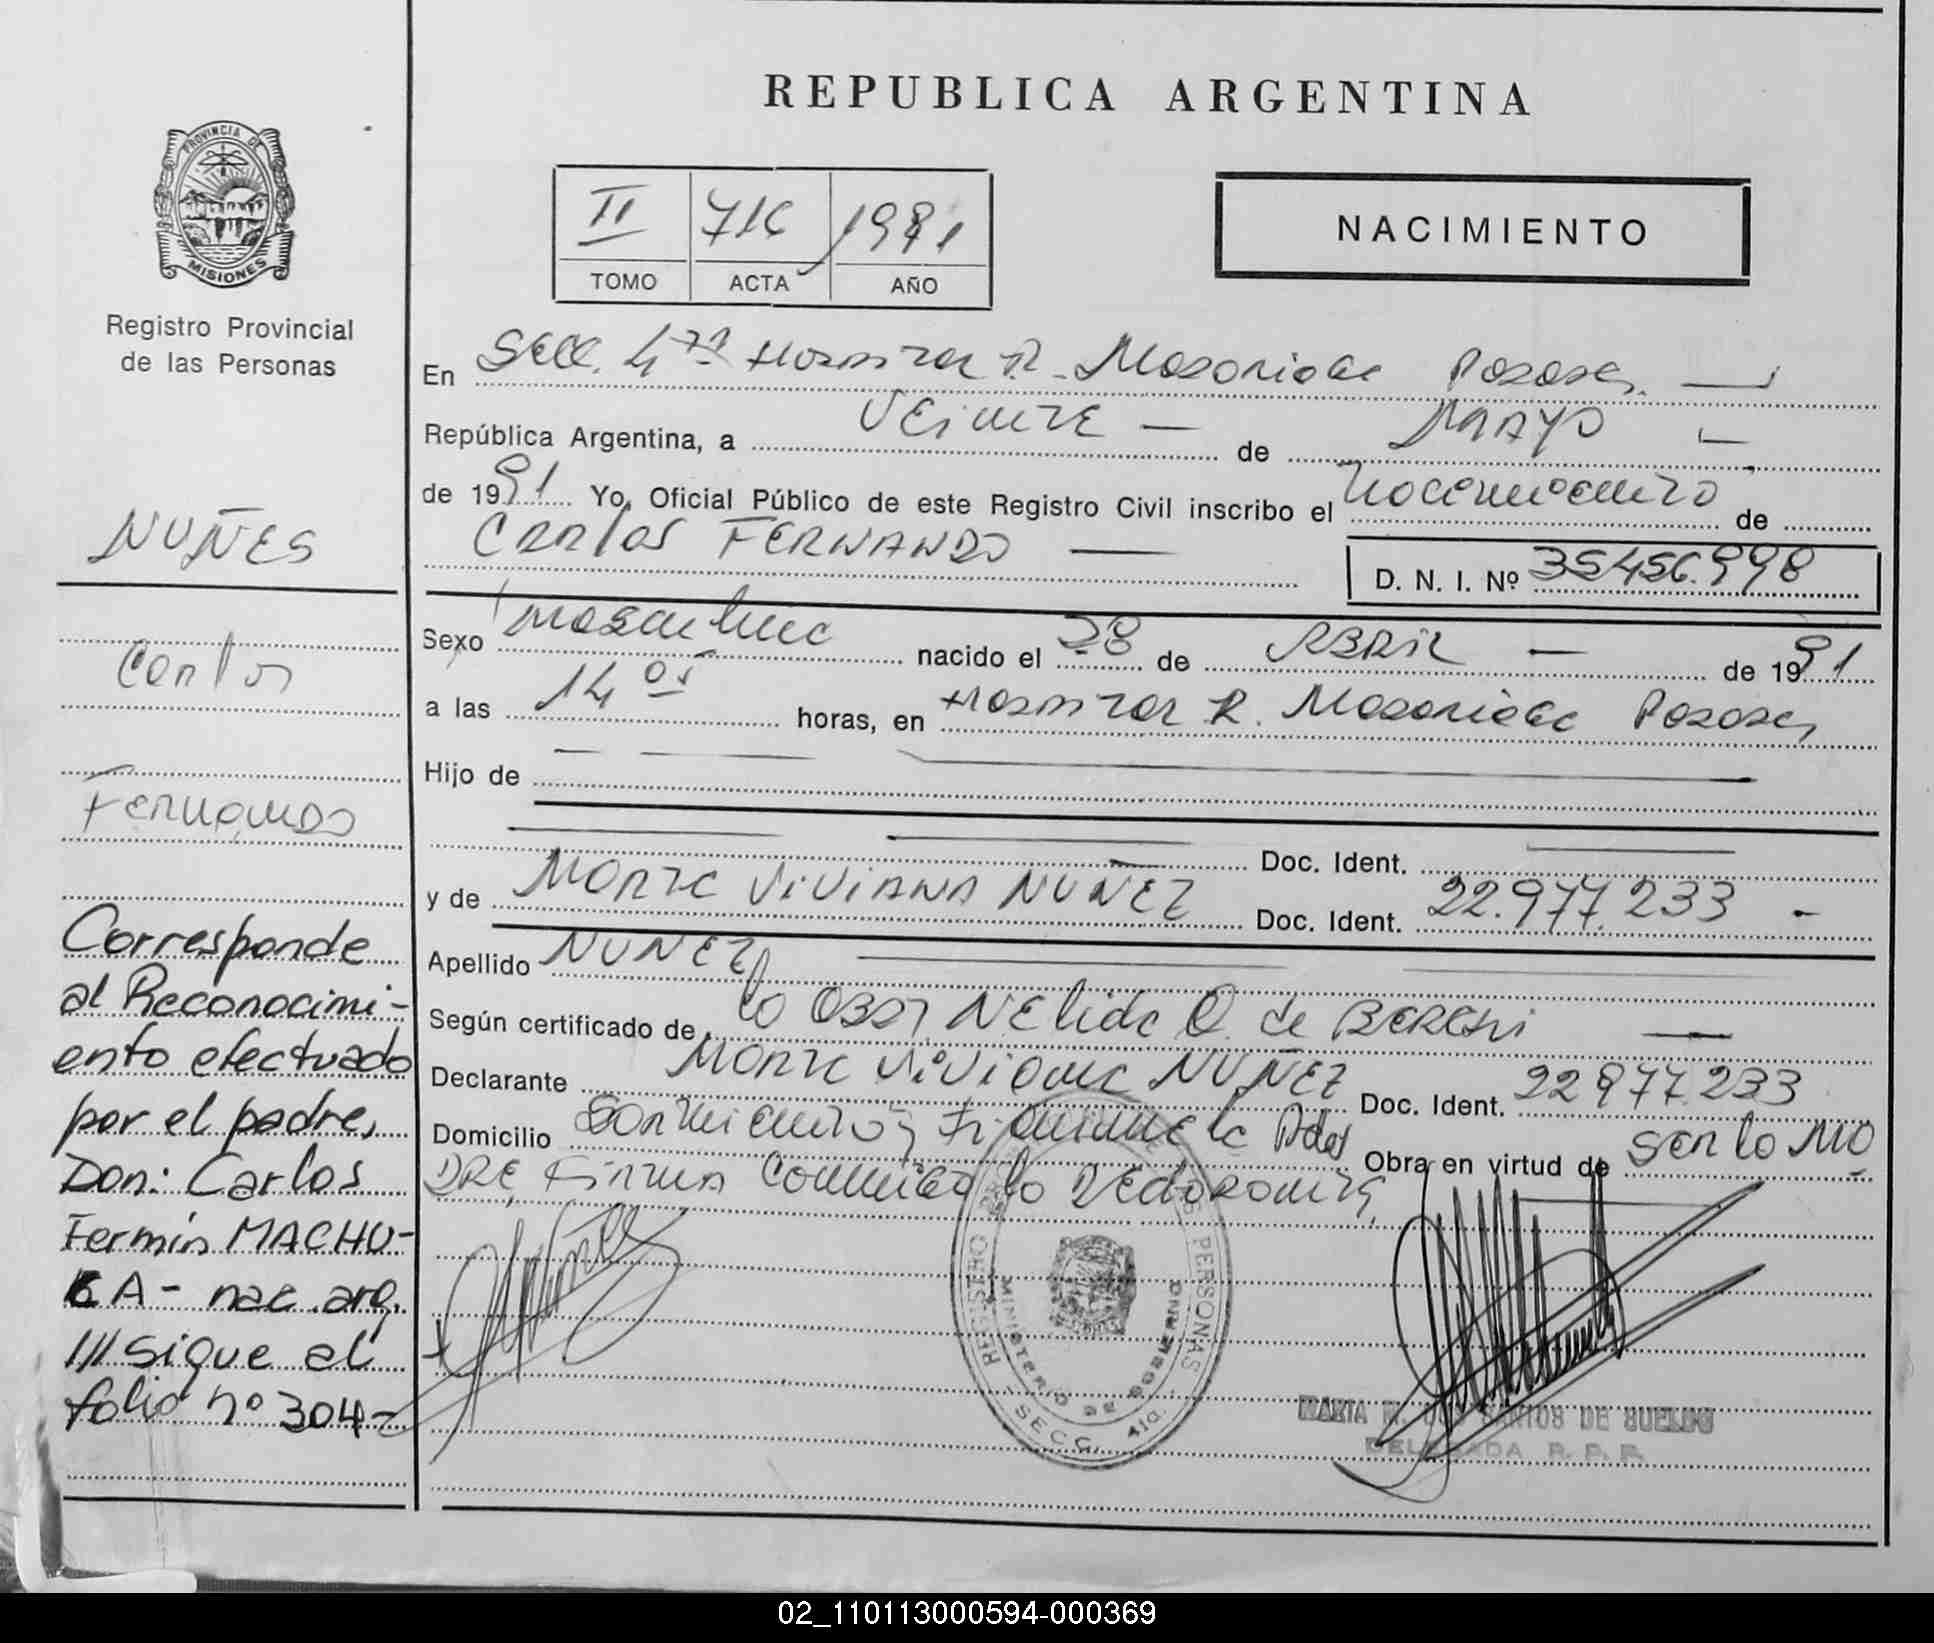 REPUBLICA ARGENTINA
PROVINCIA DE
MISIONES
Registro Provincial
de las Personas
II 716 1991
TOMO ACTA AÑO
NACIMIENTO
En Secc. 4ta Hospital R. Madariaga Posadas
República Argentina, a VEINTE de MAYO
de 1991 Yo, Oficial Público de este Registro Civil inscribo el Nacimiento de
Carlos FERNANDO
D. N. I. Nº 35456.998
Sexo Masculino nacido el 28 de ABRIL de 1991
a las 14 os horas, en Hospital R. Madariaga Posadas
Hijo de
Doc. Ident.
y de MARTA VIVIANA NUÑEZ Doc. Ident. 22.977.233 -
Apellido NUÑEZ
Según certificado de la Obst NElida O. de
Declarante MARTA ViViana NUÑEZ Doc. Ident. 22977.233
Domicilio Sarmiento y Pdas Obra en virtud de Ser la MA
DRE, Firma la Declarante
REGISTRO DE LAS PERSONAS
MINISTERIO DE GOBIERNO
SECC. 4ta.
MARIA N. DOS SANTOS DE
DELEGADA R. P. P.
NUÑES
Carlos
Fernando
Corresponde
al Reconocimi-
ento efectuado
por el padre,
Don: Carlos
Fermín MACHU-
CA - nac. arg.
/// Sigue al
folio nº 304-
02_110113000594-000369